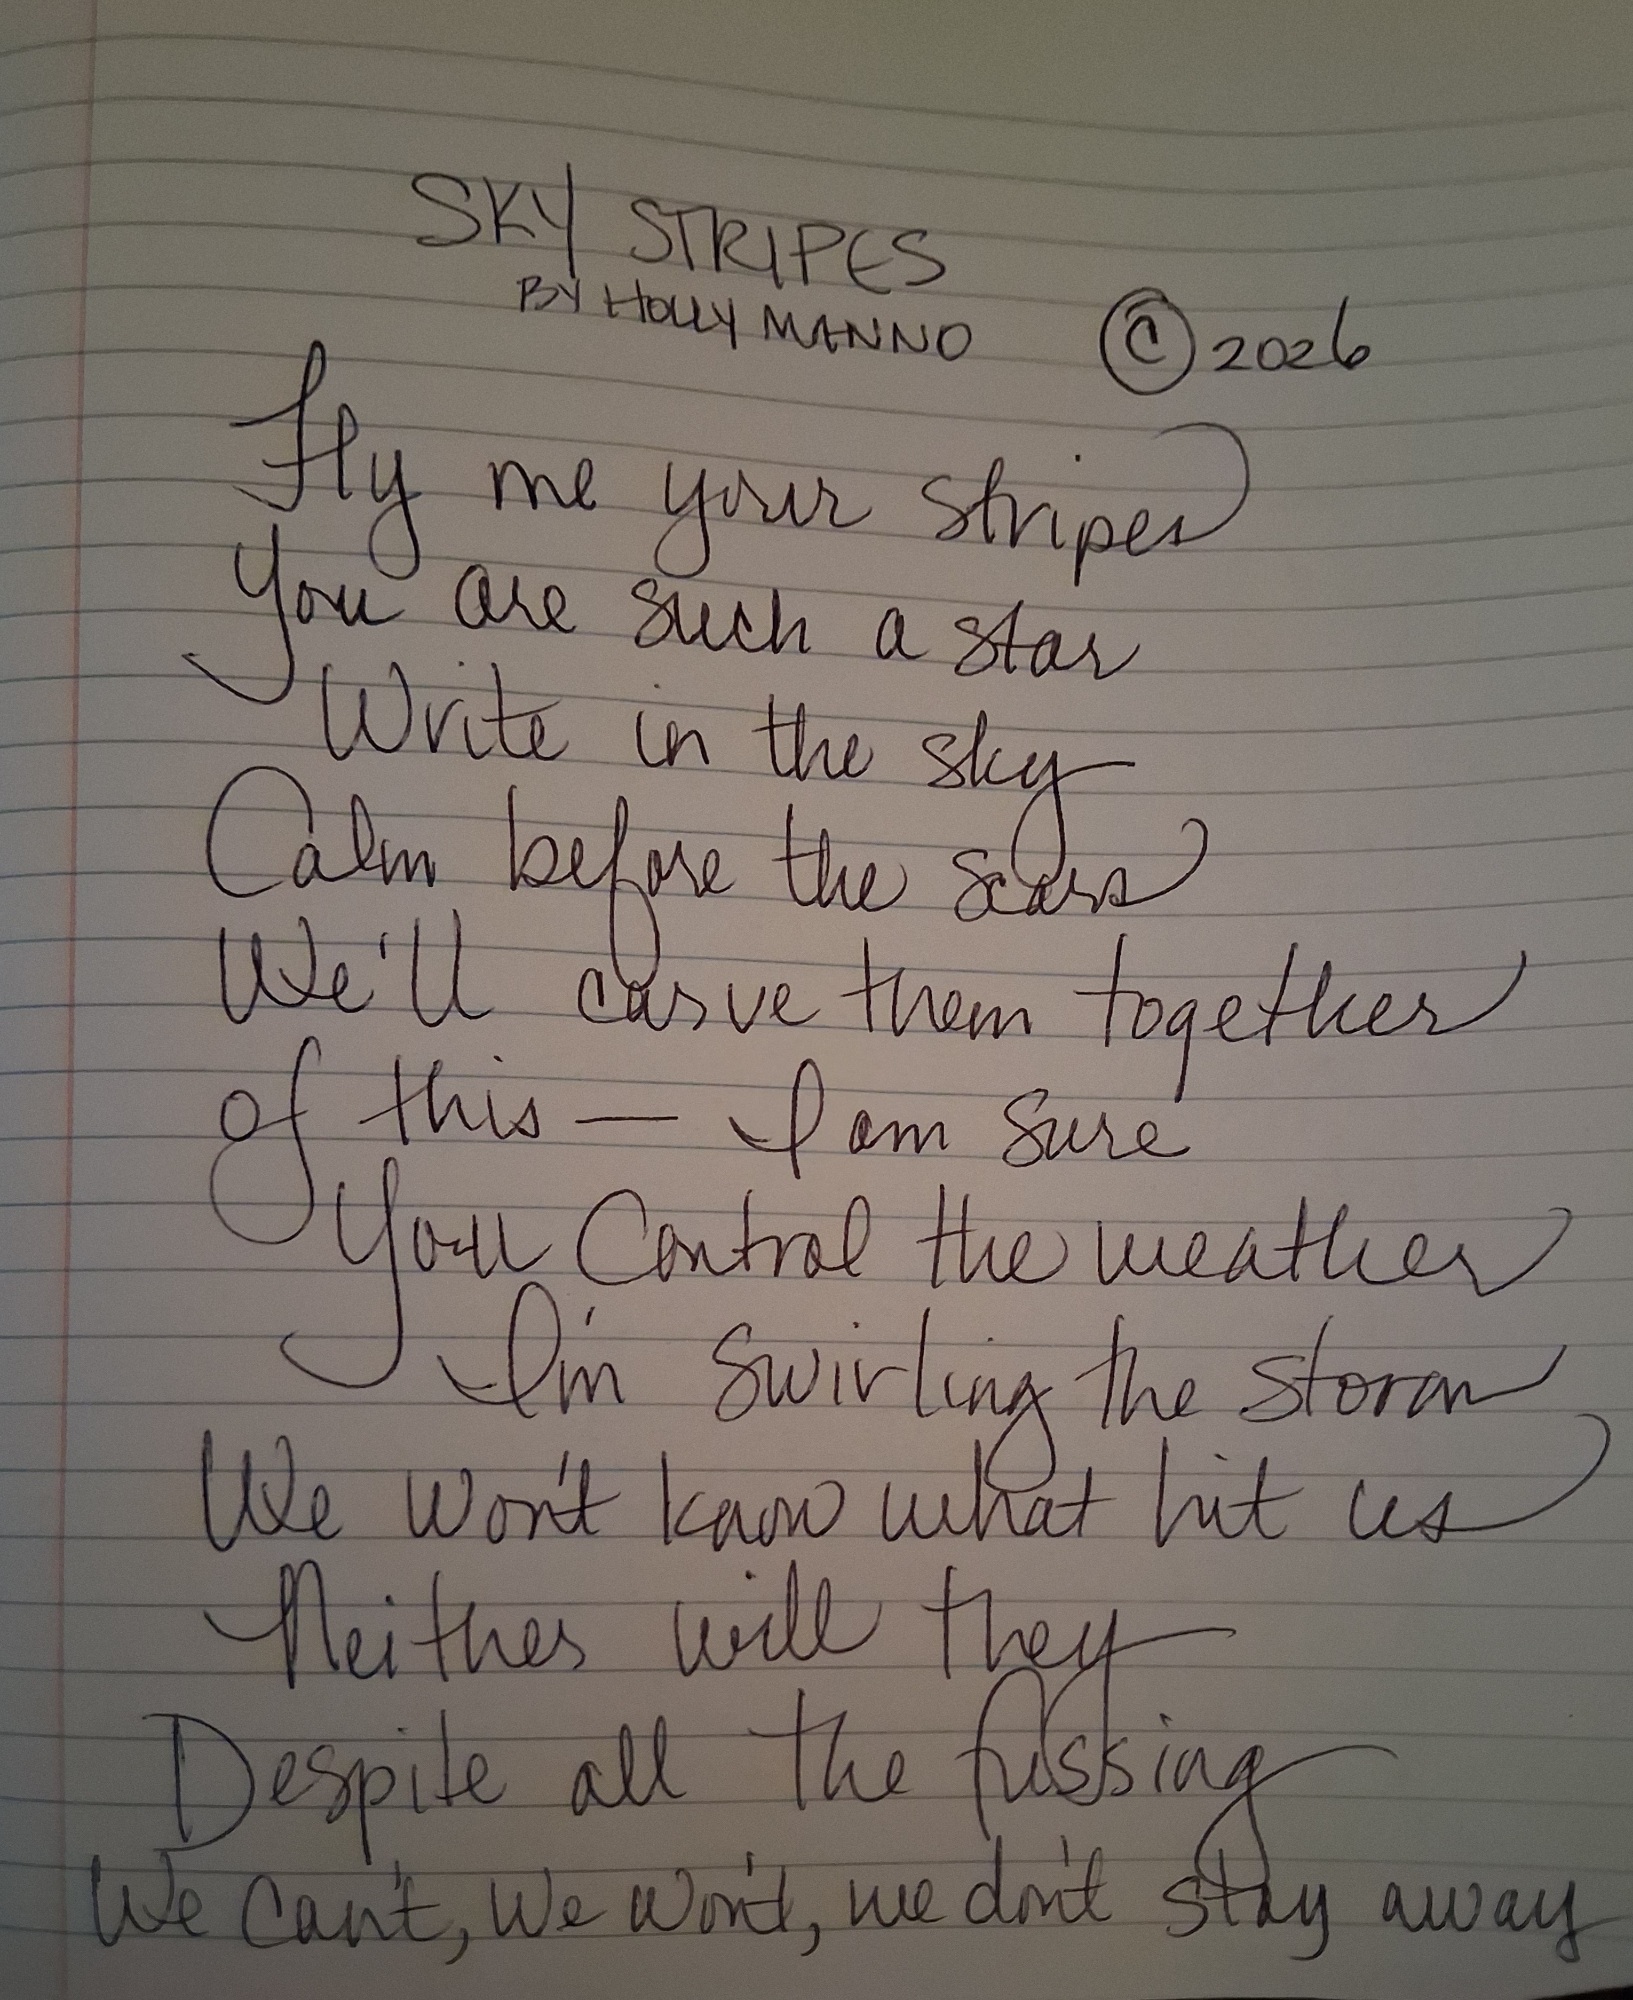 SKY STRIPES
BY HOLLY MANNO © 2026
Fly me your stripes
You are such a star
Write in the sky
Calm before the scars
We'll carve them together
of this — I am sure
You Control the weather
I'm swirling the storm
We won't know what hit us
Neither will they
Despite all the fussing
We can't, we won't, we don't stay away